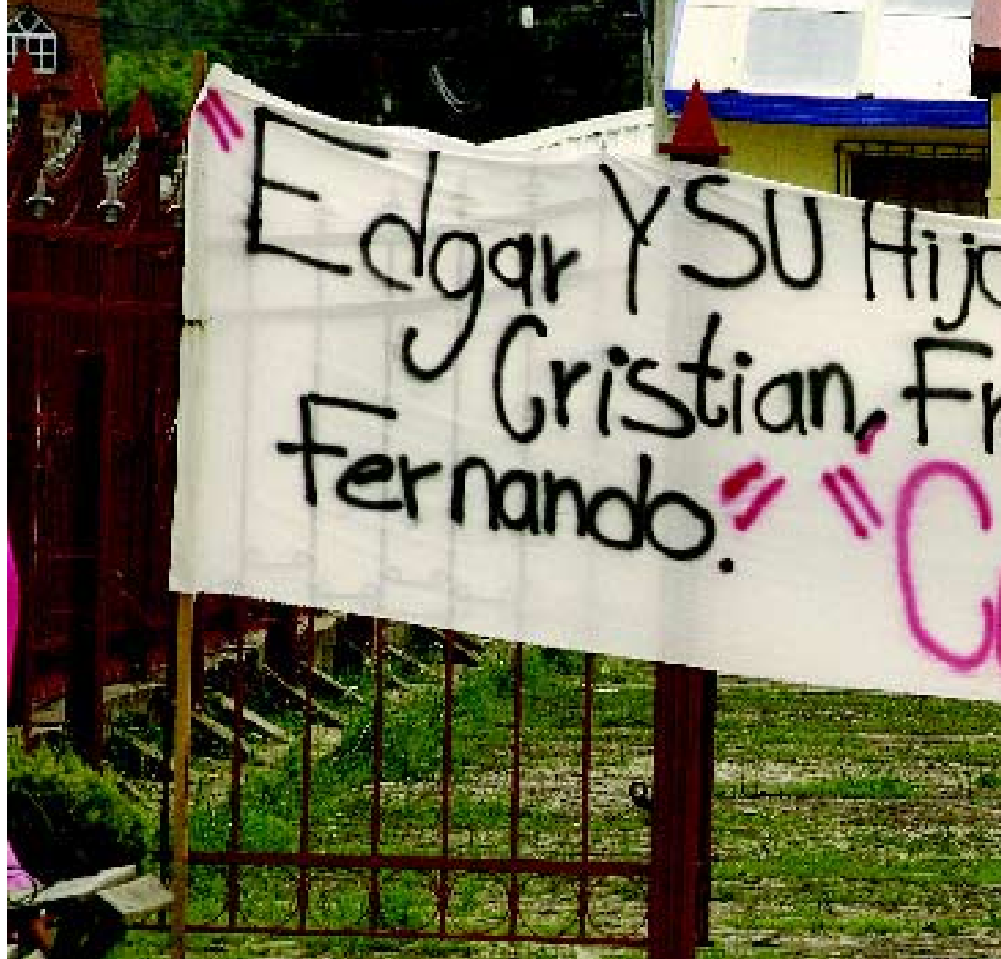 "Edgar YSU Hijo
Cristian, Fr
Fernando." "C